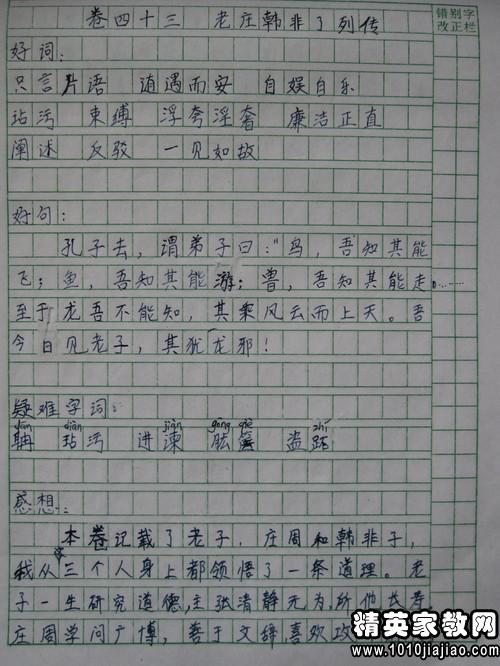 卷四十三 老庄韩非子列传
错别字
改正栏
好词：
只言片语 随遇而安 自娱自乐
玷污 束缚 浮夸淫奢 廉洁正直
阐述 反驳 一见如故
好句：
孔子去，谓弟子曰："鸟，吾知其能
飞；鱼，吾知其能游；兽，吾知其能走。……
至于龙吾不能知，其乘风云而上天。吾
今日见老子，其犹龙邪！
疑难字词：
diàn jiàn gōng qiè zhí
玷污 进谏 肱箧 盗跖
感想：
本卷记载了老子，庄周和韩非子，
我从这三个人身上都领悟了一条道理。老
子一生研究道德，主张清静无为，所他长寿
庄周学问广博，善于文辞，喜欢攻
精英家教网
www.1010jiajiao.com